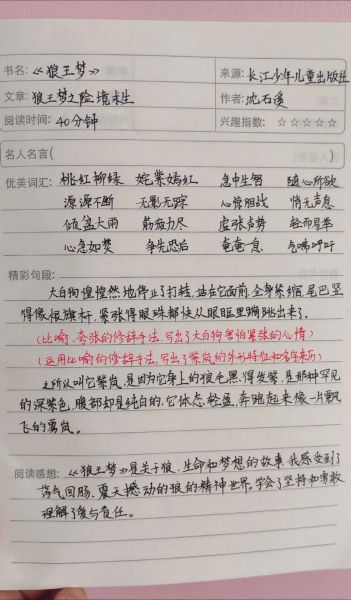 书名:《狼王梦》 来源:长江少年儿童出版社
文章:狼王梦之险境求生 作者:沈石溪
阅读时间:40分钟 兴趣指数:☆☆☆☆☆
名人名言( )
优美词汇:桃红柳绿 姹紫嫣红 急中生智 随心所欲
源源不断 无影无踪 心惊胆战 悄无声息
倾盆大雨 筋疲力尽 虚张声势 轻而易举
心急如焚 争先恐后 奄奄一息 气喘吁吁
精彩句段:
大白狗惶惶然地停止了打转,站在它面前,全身紧缩,尾巴竖
得像根旗杆,紧张得眼珠都快从眼眶里蹦跳出来了。
(比喻、夸张的修辞手法,写出了大白狗害怕紧张的心情)
(运用比喻的修辞手法,写出了紫岚的外形特征和名字来历)
之所以叫它紫岚,是因为它身上的狼毛黑得发紫,是那种罕见
的深紫色,腹部却是纯白的,它体态轻盈,奔跑起来像一片飘
飞的雾岚。
阅读感想:《狼王梦》是关于狼、生命和梦想的故事,我感受到了
荡气回肠、震天撼动的狼的精神世界,学会了坚持和勇敢
理解了爱与责任。